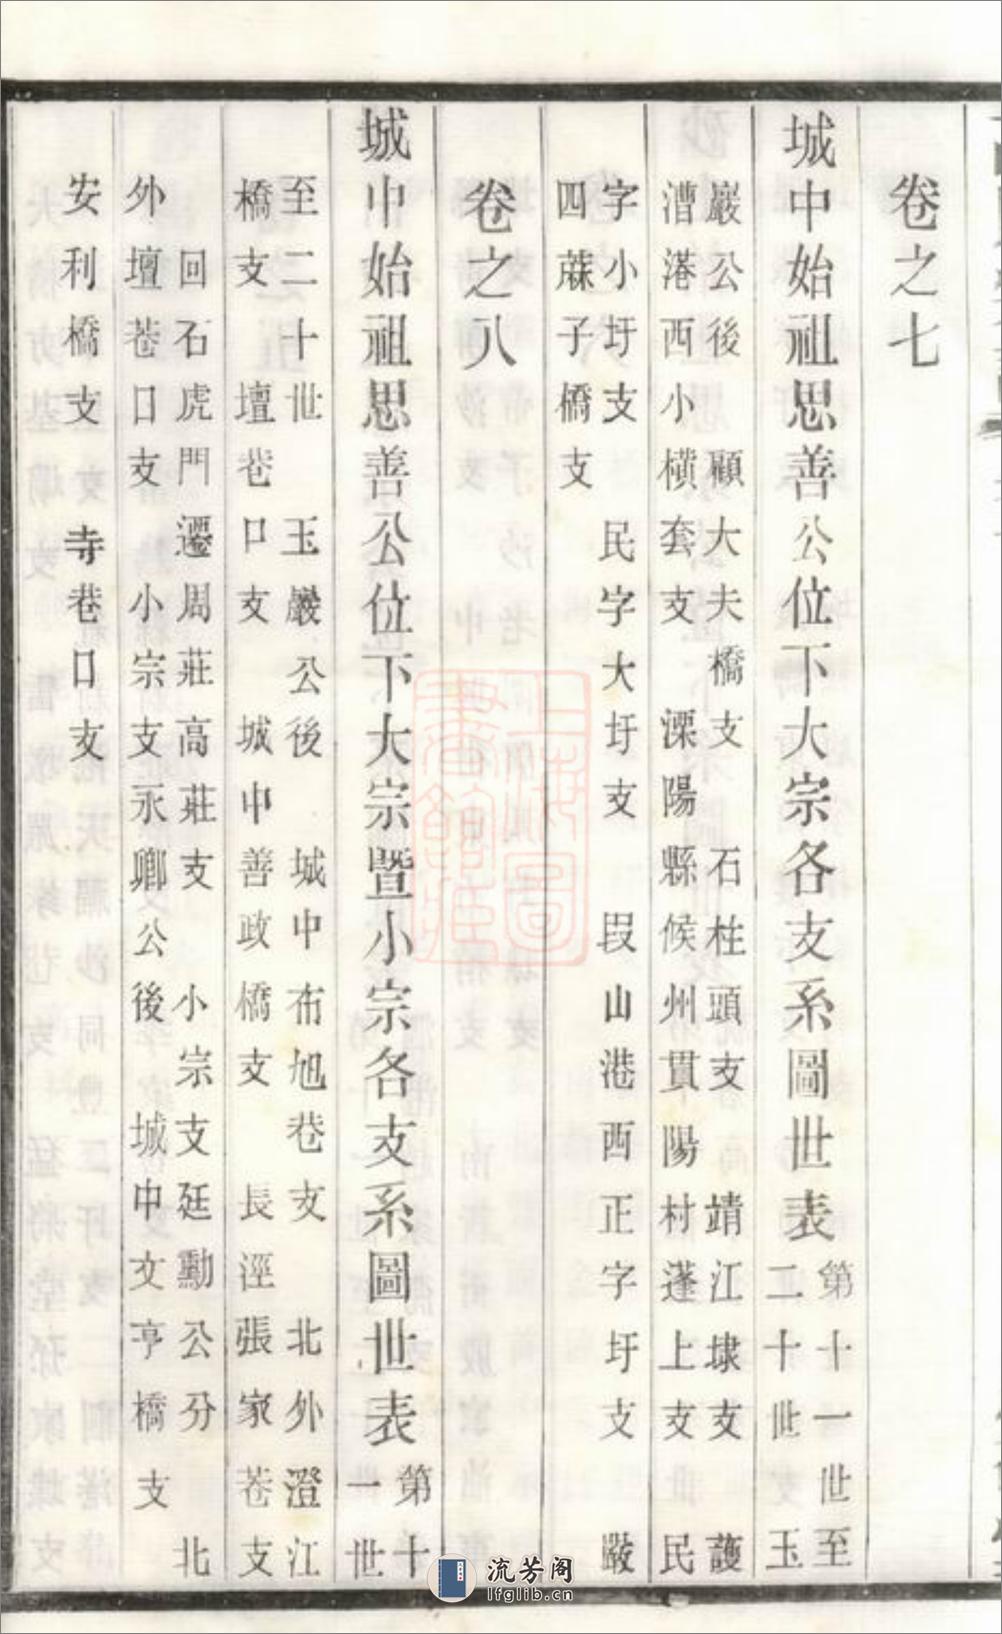 卷之七
城中始祖思善公位下大宗各支系圖世表
第十一世至
二十世 玉
巖公後 顧大夫橋支 石柱頭支 靖江埭支 護
漕港西小橫套支 溧陽縣候州貫陽村蓬上支 民
字小圩支 民字大圩支 段山港西正字圩支 嚴
四蔴子橋支
卷之八
城中始祖思善公位下大宗暨小宗各支系圖世表
第十
一世
至二十世 玉巖公後 城中布旭巷支 北外澄江
橋支 壇巷口支 城中善政橋支 長涇張家巷支
回石虎門遷周莊高莊支 小宗支廷勳公分 北
外壇巷口支 小宗支永卿公後 城中文亨橋支
安利橋支 寺巷口支
上海圖書館藏
流芳阁
lfglib.cn